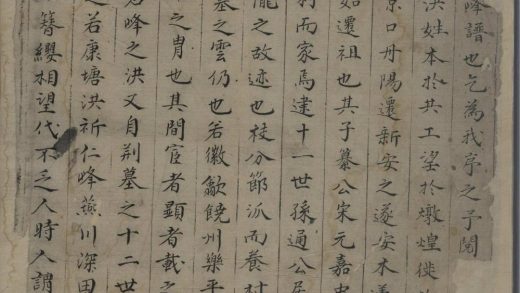 峰譜也乞為我序之予閱
洪姓本於共工望於燉煌徙
京口丹陽遷新安之遂安木
如遷祖也其子纂公宋元嘉
村而家焉建十一世孫通公居
隴之故迹也枝分節派而養村
墓之雲仍也若徽歙饒州樂平
之胄也其間宦者顯者載之
峰之洪又自荆墓之十二世
之若康塘洪祈仁峰燕川深田
簪纓相望代不乏人時人謂